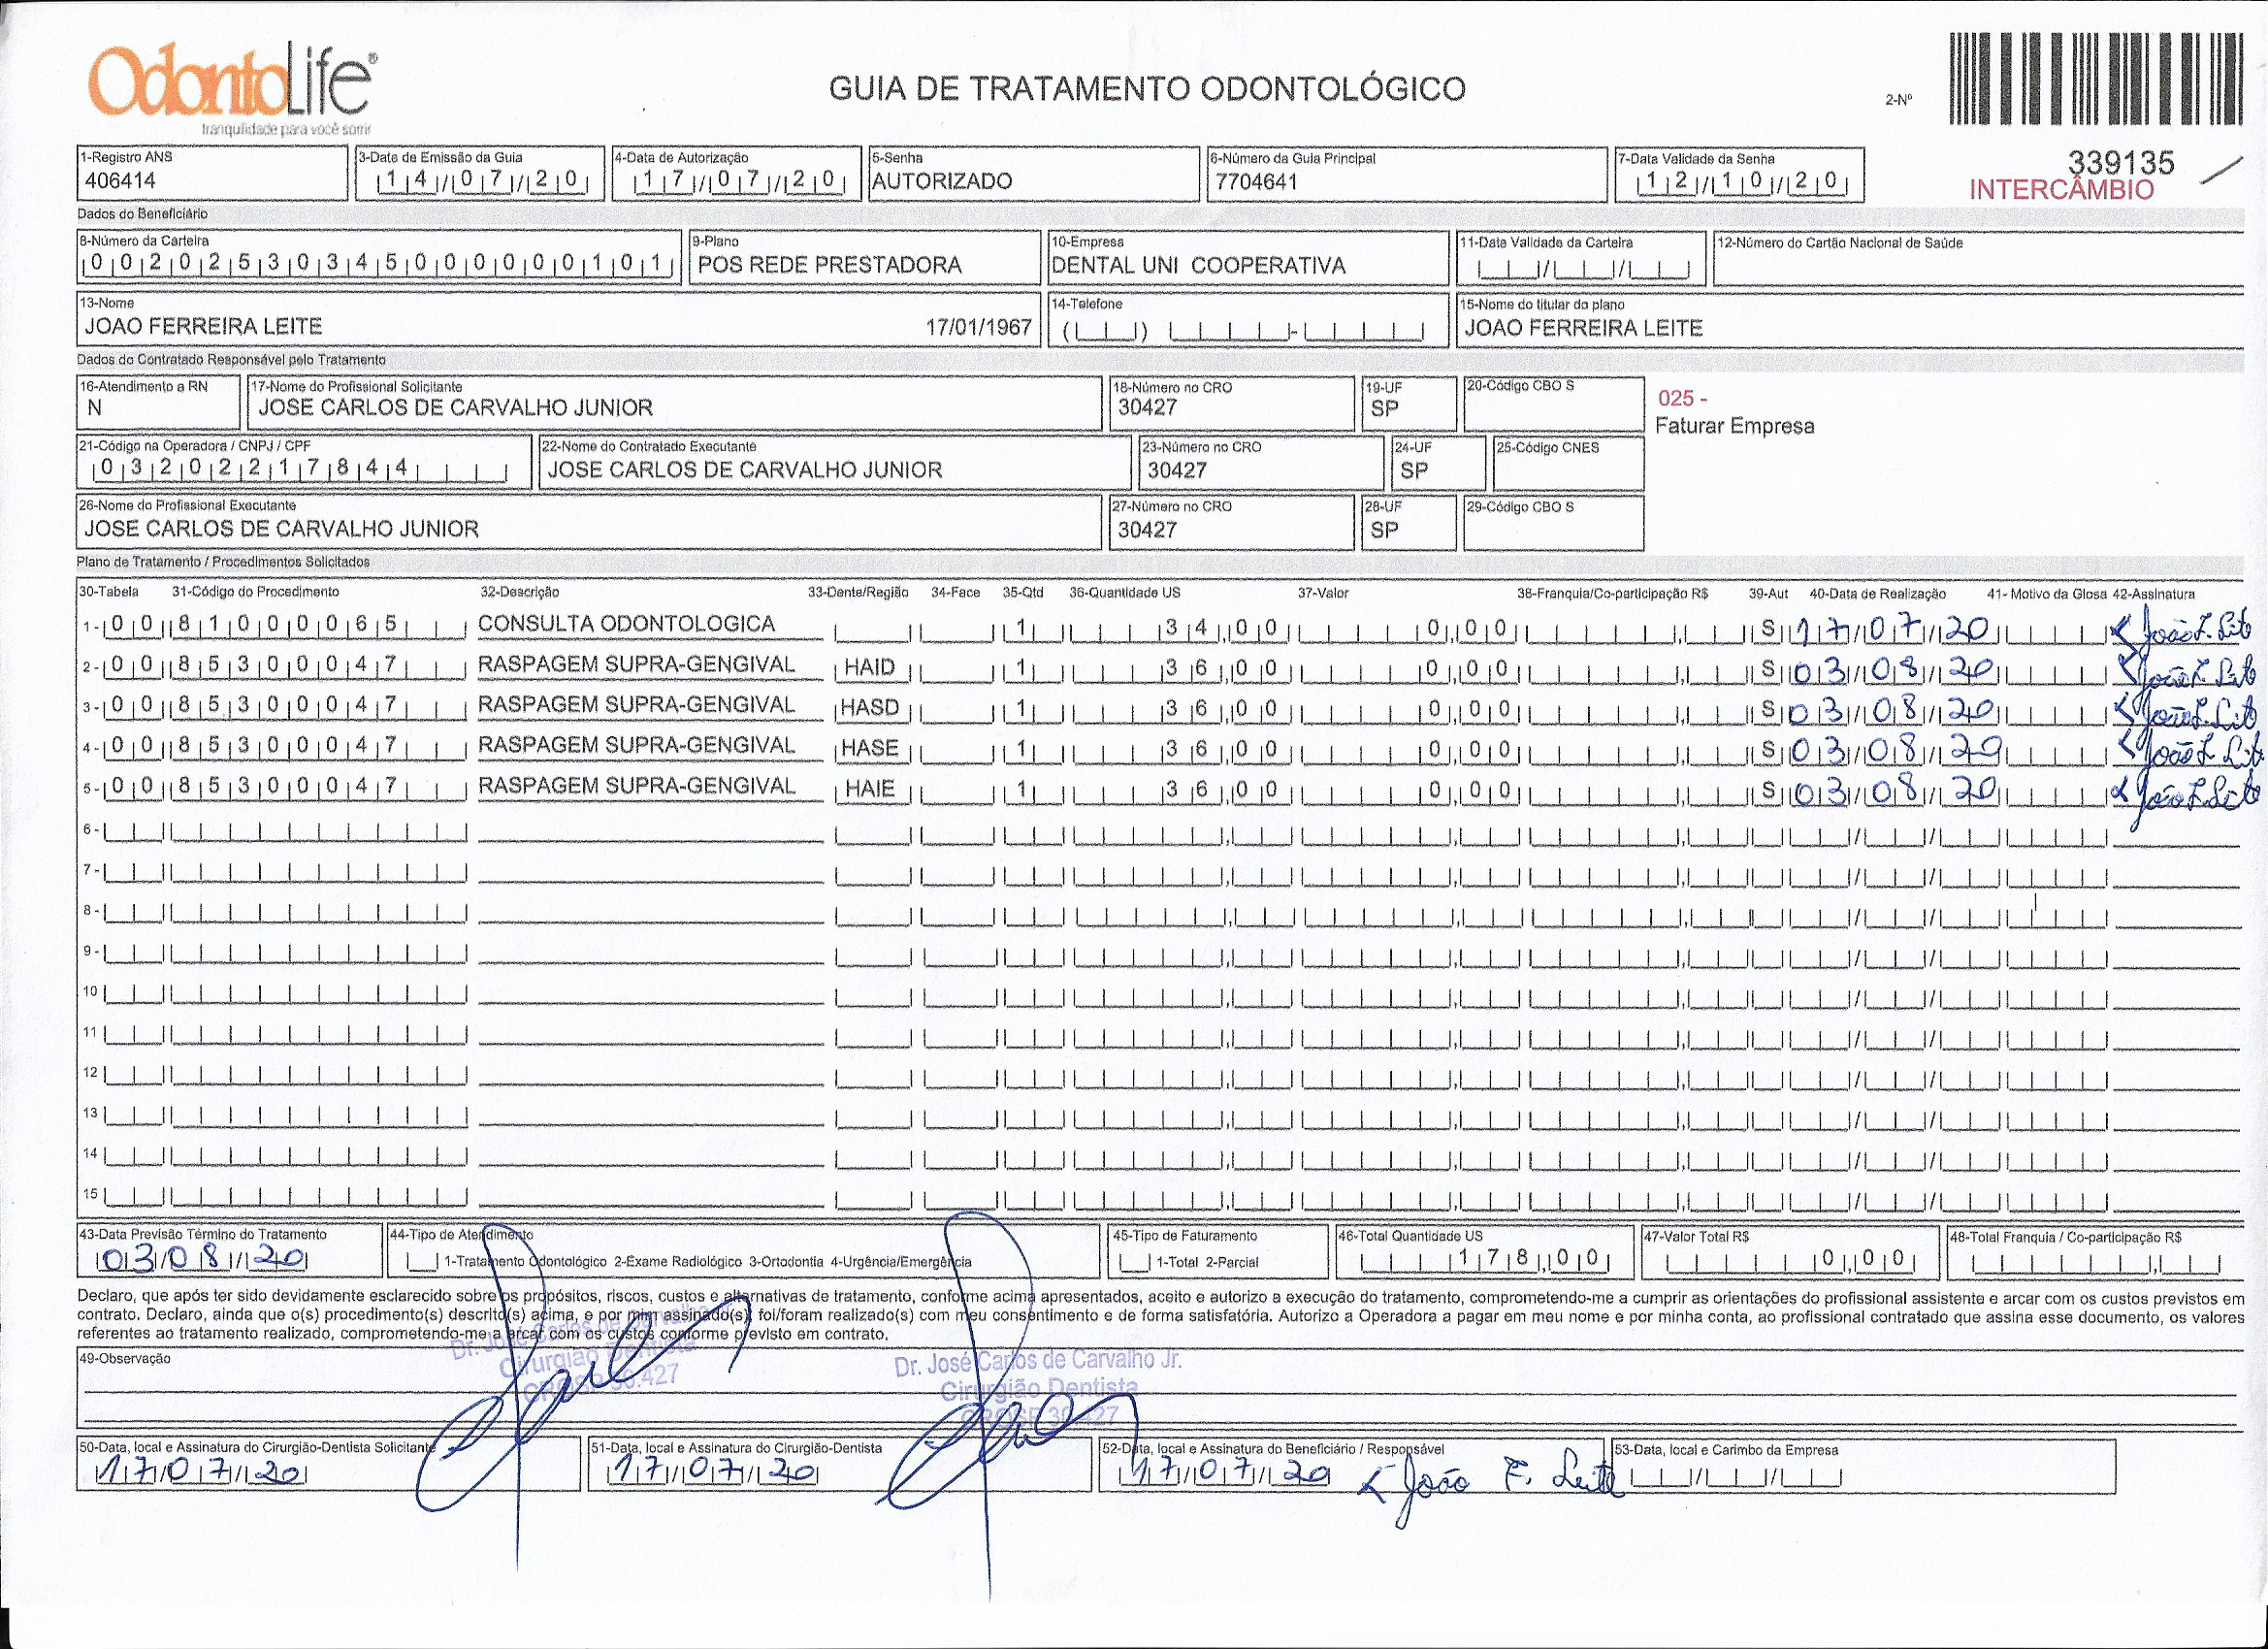 OdontoLife®
tranquilidade para você sorrir
GUIA DE TRATAMENTO ODONTOLÓGICO
2-Nº
339135
INTERCÂMBIO
1-Registro ANS
406414
3-Data de Emissão da Guia
14/07/20
4-Data de Autorização
17/07/20
5-Senha
AUTORIZADO
6-Número da Guia Principal
7704641
7-Data Validade da Senha
12/10/20
Dados do Beneficiário
8-Número da Carteira
00202530345000000101
9-Plano
POS REDE PRESTADORA
10-Empresa
DENTAL UNI COOPERATIVA
11-Data Validade da Carteira
12-Número do Cartão Nacional de Saúde
13-Nome
JOAO FERREIRA LEITE 17/01/1967
14-Telefone
15-Nome do titular do plano
JOAO FERREIRA LEITE
Dados do Contratado Responsável pelo Tratamento
16-Atendimento a RN
N
17-Nome do Profissional Solicitante
JOSE CARLOS DE CARVALHO JUNIOR
18-Número no CRO
30427
19-UF
SP
20-Código CBO S
025 -
Faturar Empresa
21-Código na Operadora / CNPJ / CPF
03202217844
22-Nome do Contratado Executante
JOSE CARLOS DE CARVALHO JUNIOR
23-Número no CRO
30427
24-UF
SP
25-Código CNES
26-Nome do Profissional Executante
JOSE CARLOS DE CARVALHO JUNIOR
27-Número no CRO
30427
28-UF
SP
29-Código CBO S
Plano de Tratamento / Procedimentos Solicitados
30-Tabela 31-Código do Procedimento 32-Descrição 33-Dente/Região 34-Face 35-Qtd 36-Quantidade US 37-Valor 38-Franquia/Co-participação R$ 39-Aut 40-Data de Realização 41- Motivo da Glosa 42-Assinatura
1- 00 81000065 CONSULTA ODONTOLOGICA 1 34,00 0,00 S 17/07/20 João F. Leite
2- 00 85300047 RASPAGEM SUPRA-GENGIVAL HAID 1 36,00 0,00 S 03/08/20 João F. Leite
3- 00 85300047 RASPAGEM SUPRA-GENGIVAL HASD 1 36,00 0,00 S 03/08/20 João F. Leite
4- 00 85300047 RASPAGEM SUPRA-GENGIVAL HASE 1 36,00 0,00 S 03/08/20 João F. Leite
5- 00 85300047 RASPAGEM SUPRA-GENGIVAL HAIE 1 36,00 0,00 S 03/08/20 João F. Leite
6-
7-
8-
9-
10
11
12
13
14
15
43-Data Previsão Término do Tratamento
03/08/20
44-Tipo de Atendimento
1-Tratamento Odontológico 2-Exame Radiológico 3-Ortodontia 4-Urgência/Emergência
45-Tipo de Faturamento
1-Total 2-Parcial
46-Total Quantidade US
178,00
47-Valor Total R$
0,00
48-Total Franquia / Co-participação R$
Declaro, que após ter sido devidamente esclarecido sobre os propósitos, riscos, custos e alternativas de tratamento, conforme acima apresentados, aceito e autorizo a execução do tratamento, comprometendo-me a cumprir as orientações do profissional assistente e arcar com os custos previstos em
contrato. Declaro, ainda que o(s) procedimento(s) descrito(s) acima, e por mim assinado(s), foi/foram realizado(s) com meu consentimento e de forma satisfatória. Autorizo a Operadora a pagar em meu nome e por minha conta, ao profissional contratado que assina esse documento, os valores
referentes ao tratamento realizado, comprometendo-me a arcar com os custos conforme previsto em contrato.
49-Observação
Dr. José Carlos de Carvalho Jr.
Cirurgião Dentista
CROSP 30.427
Dr. José Carlos de Carvalho Jr.
Cirurgião Dentista
CROSP 30.427
50-Data, local e Assinatura do Cirurgião-Dentista Solicitante
17/07/20
51-Data, local e Assinatura do Cirurgião-Dentista
17/07/20
52-Data, local e Assinatura do Beneficiário / Responsável
17/07/20 João F. Leite
53-Data, local e Carimbo da Empresa